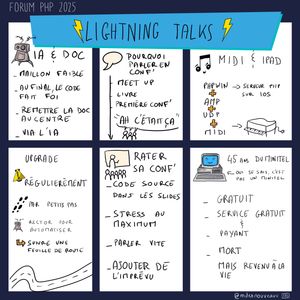 FORUM PHP 2025
LIGHTNING TALKS
IA & DOC
- MAILLON FAIBLE
- AU FINAL, LE CODE
FAIT FOI
- REMETTRE LA DOC
AU CENTRE
- VIA L'IA
POURQUOI
PARLER EN
CONF'
MEET UP
LIVRE
PREMIÈRE CONF'
"AH C'ÉTAIT ÇA"
MIDI & IPAD
PHPWIN
+
AMP
+
UDP
+
MIDI
→ SERVEUR MIDI
SUR IOS
UPGRADE
RÉGULIÈREMENT
PAR PETITS PAS
RECTOR POUR
AUTOMATISER
→ SUIVRE UNE
FEUILLE DE ROUTE
RATER
SA CONF'
- CODE SOURCE
DANS LES SLIDES
- STRESS AU
MAXIMUM
- PARLER VITE
- AJOUTER DE
L'IMPRÉVU
45 ANS DU MINITEL
- GRATUIT
- SERVICE GRATUIT
&
PAYANT
- MORT
- MAIS REVENU À LA
VIE